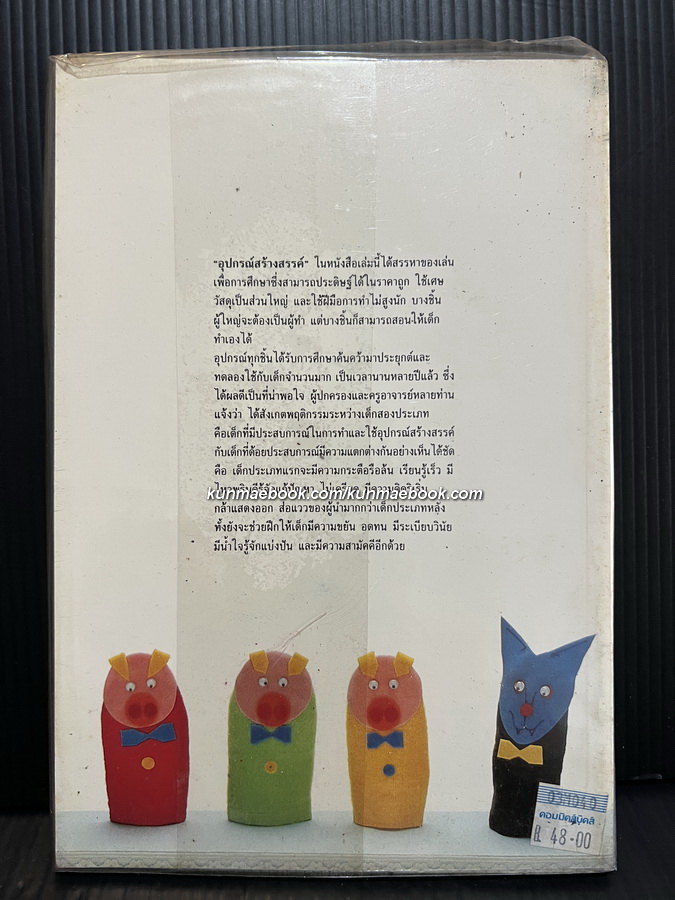 "อุปกรณ์สร้างสรรค์" ในหนังสือเล่มนี้ได้สรรหาของเล่น
เพื่อการศึกษาซึ่งสามารถประดิษฐ์ได้ในราคาถูก ใช้เศษ
วัสดุเป็นส่วนใหญ่ และใช้ฝีมือการทำไม่สูงนัก บางชิ้น
ผู้ใหญ่จะต้องเป็นผู้ทำ แต่บางชิ้นก็สามารถสอนให้เด็ก
ทำเองได้
อุปกรณ์ทุกชิ้นได้รับการศึกษาค้นคว้ามาประยุกต์และ
ทดลองใช้กับเด็กจำนวนมาก เป็นเวลานานหลายปีแล้ว ซึ่ง
ได้ผลดีเป็นที่น่าพอใจ ผู้ปกครองและครูอาจารย์หลายท่าน
แจ้งว่า ได้สังเกตพฤติกรรมระหว่างเด็กสองประเภท
คือเด็กที่มีประสบการณ์ในการทำและใช้อุปกรณ์สร้างสรรค์
กับเด็กที่ด้อยประสบการณ์มีความแตกต่างกันอย่างเห็นได้ชัด
คือ เด็กประเภทแรกจะมีความกระตือรือล้น เรียนรู้เร็ว มี
kunmaebook.com/kunmaebook.com
กล้าแสดงออก ส่อแววของผู้นำมากกว่าเด็กประเภทหลัง
ทั้งยังจะช่วยฝึกให้เด็กมีความขยัน อดทน มีระเบียบวินัย
มีน้ำใจรู้จักแบ่งปัน และมีความสามัคคีอีกด้วย
48-00